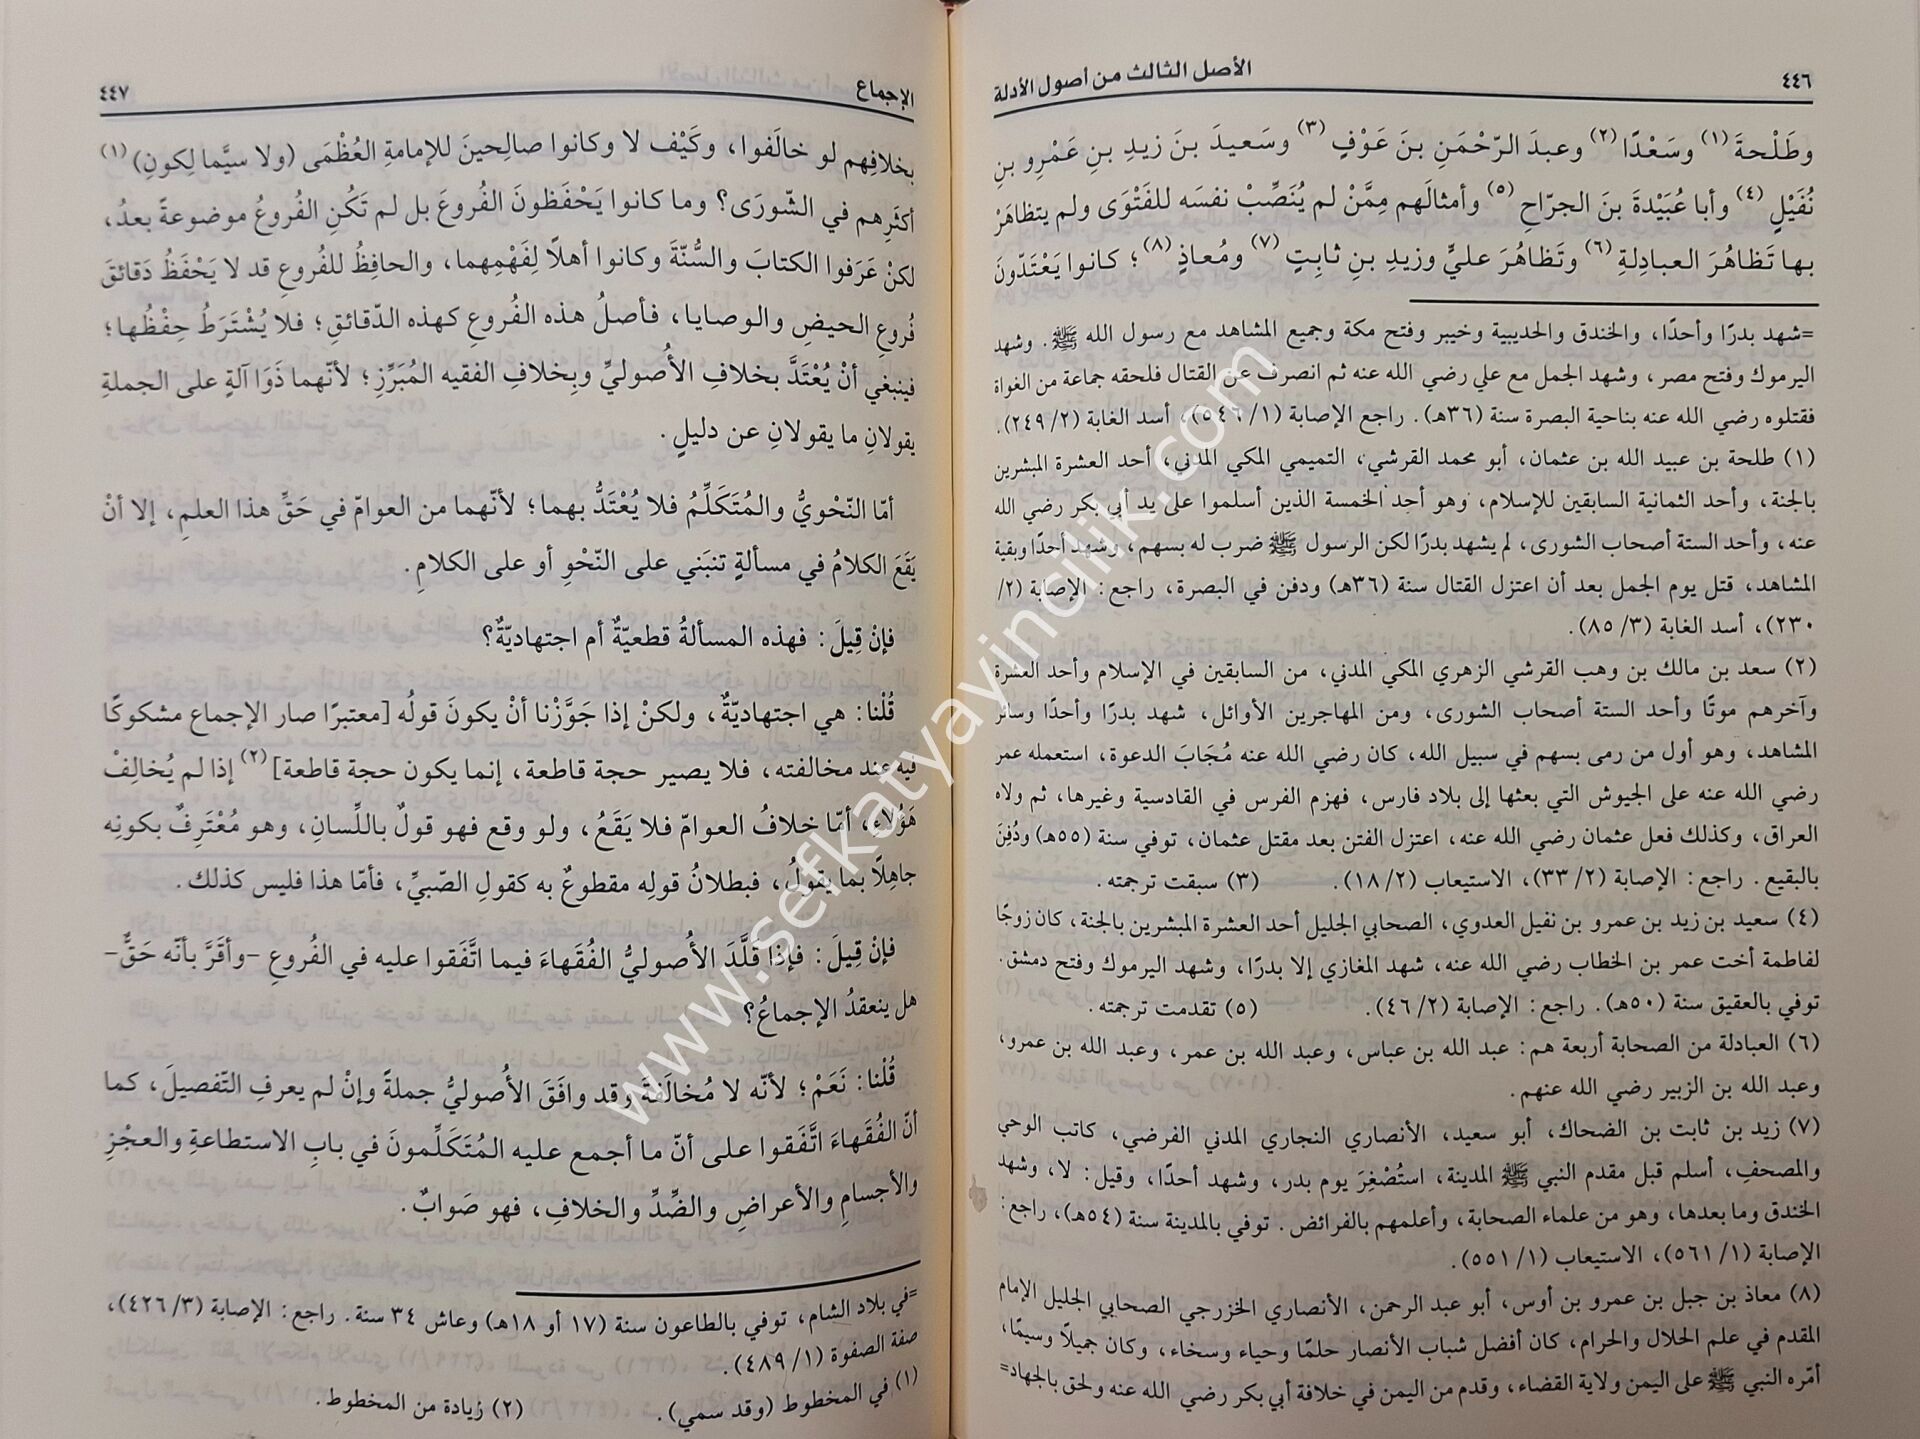 ٤٤٦
الأصل الثالث من أصول الأدلة
وطَلْحةَ (١) وسَعْدًا (٢) وعبدَ الرّحْمَنِ بنَ عَوْفٍ (٣) وسَعيدَ بنَ زيدِ بنِ عَمْرِو بنِ
نُفَيْلٍ (٤) وأبا عُبَيْدةَ بنَ الجرّاحِ (٥) وأمثالَهم مِمَّنْ لم يُنَصِّبْ نفسَه للفَتْوَى ولم يتظاهَرْ
بها تَظاهُرَ العبادِلةِ (٦) وتَظاهُرَ عليٍّ وزيدِ بنِ ثابِتٍ (٧) ومُعاذٍ (٨)؛ كانوا يَعْتَدّونَ
=شهد بدرًا وأحدًا، والخندق والحديبية وخيبر وفتح مكة وجميع المشاهد مع رسول الله ﷺ. وشهد
اليرموك وفتح مصر، وشهد الجمل مع علي رضي الله عنه ثم انصرف عن القتال فلحقه جماعة من الغواة
فقتلوه رضي الله عنه بناحية البصرة سنة (٣٦هـ). راجع الإصابة (٥٤٦/١)، أسد الغابة (٢٤٩/٢).
(١) طلحة بن عبيد الله بن عثمان، أبو محمد القرشي، التميمي المكي المدني، أحد العشرة المبشرين
بالجنة، وأحد الثمانية السابقين للإسلام، وهو أحد الخمسة الذين أسلموا على يد أبي بكر رضي الله
عنه، وأحد الستة أصحاب الشورى، لم يشهد بدرًا لكن الرسول ﷺ ضرب له بسهم، وشهد أحدًا وبقية
المشاهد، قتل يوم الجمل بعد أن اعتزل القتال سنة (٣٦هـ) ودفن في البصرة، راجع: الإصابة (٢/
٢٣٠)، أسد الغابة (٨٥/٣).
(٢) سعد بن مالك بن وهب القرشي الزهري المكي المدني، من السابقين في الإسلام وأحد العشرة
وآخرهم موتًا وأحد الستة أصحاب الشورى، ومن المهاجرين الأوائل، شهد بدرًا وأحدًا وسائر
المشاهد، وهو أول من رمى بسهم في سبيل الله، كان رضي الله عنه مُجَابَ الدعوة، استعمله عمر
رضي الله عنه على الجيوش التي بعثها إلى بلاد فارس، فهزم الفرس في القادسية وغيرها، ثم ولاه
العراق، وكذلك فعل عثمان رضي الله عنه، اعتزل الفتن بعد مقتل عثمان، توفي سنة (٥٥هـ) ودُفِنَ
بالبقيع. راجع: الإصابة (٣٣/٢)، الاستيعاب (١٨/٢). (٣) سبقت ترجمته.
(٤) سعيد بن زيد بن عمرو بن نفيل العدوي، الصحابي الجليل أحد العشرة المبشرين بالجنة، كان زوجًا
لفاطمة أخت عمر بن الخطاب رضي الله عنه، شهد المغازي إلا بدرًا، وشهد اليرموك وفتح دمشق.
توفي بالعقيق سنة (٥٠هـ). راجع: الإصابة (٤٦/٢). (٥) تقدمت ترجمته.
(٦) العبادلة من الصحابة أربعة هم: عبد الله بن عباس، وعبد الله بن عمر، وعبد الله بن عمرو،
وعبد الله بن الزبير رضي الله عنهم.
(٧) زيد بن ثابت بن الضحاك، أبو سعيد، الأنصاري النجاري المدني الفرضي، كاتب الوحي
والمصحف، أسلم قبل مقدم النبي ﷺ المدينة، استُصْغِرَ يوم بدر، وشهد أحدًا، وقيل: لا، وشهد
الخندق وما بعدها، وهو من علماء الصحابة، وأعلمهم بالفرائض. توفي بالمدينة سنة (٥٤هـ)، راجع:
الإصابة (٥٦١/١)، الاستيعاب (٥٥١/١).
(٨) معاذ بن جبل بن عمرو بن أوس، أبو عبد الرحمن، الأنصاري الخزرجي الصحابي الجليل الإمام
المقدم في علم الحلال والحرام، كان أفضل شباب الأنصار حلمًا وحياء وسخاء، وكان جميلًا وسيمًا،
أمّره النبي ﷺ على اليمن ولاية القضاء، وقدم من اليمن في خلافة أبي بكر رضي الله عنه ولحق بالجهاد=
الإجماع
٤٤٧
بخلافِهم لو خالَفوا، وكَيْف لا وكانوا صالِحينَ للإمامةِ العُظْمَى (ولا سيَّما لكونِ) (١)
أكثَرِهم في الشّورَى؟ وما كانوا يَحْفَظونَ الفُروعَ بل لم تَكُنِ الفُروعُ موضوعةً بعدُ،
لكنْ عَرَفوا الكتابَ والسُّنّةَ وكانوا أهلًا لِفَهْمِهما، والحافِظُ للفُروعِ قد لا يَحْفَظُ دَقائقَ
فُروعِ الحيضِ والوصايا، فأصلُ هذه الفُروعِ كهذه الدّقائقِ؛ فلا يُشْتَرَطُ حِفْظُها؛
فينبغي أنْ يُعْتَدَّ بخلافِ الأُصوليِّ وبِخلافِ الفقيه المُبَرِّزِ؛ لأنّهما ذَوَا آلةٍ على الجملةِ
يقولانِ ما يقولانِ عن دليلٍ.
أمّا النّحْويُّ والمُتَكَلِّمُ فلا يُعْتَدُّ بهما؛ لأنّهما من العوامّ في حَقِّ هذا العلمِ، إلا أنْ
يَقَعَ الكلامُ في مسألةٍ تنبَني على النّحْوِ أو على الكلامِ.
فإنْ قِيلَ: فهذه المسألةُ قطعيّةٌ أم اجتهاديّةٌ؟
قُلْنا: هي اجتهاديّةٌ، ولكنْ إذا جَوَّزْنا أنْ يكونَ قولُه [معتبرًا صار الإجماع مشكوكًا
فيه عند مخالفته، فلا يصير حجة قاطعة، إنما يكون حجة قاطعة] (٢) إذا لم يُخالِفْ
هَؤُلاءِ، أمّا خلافُ العوامّ فلا يَقَعُ، ولو وقع فهو قولٌ باللّسانِ، وهو مُعْتَرِفٌ بكونِه
جاهِلًا بما يقولُ، فبطلانُ قولِه مقطوعٌ به كقولِ الصّبيِّ، فأمّا هذا فليس كذلك.
فإنْ قِيلَ: فإذا قَلَّدَ الأُصوليُّ الفُقَهاءَ فيما اتَّفَقوا عليه في الفُروعِ -وأقَرَّ بأنّه حَقٌّ-
هل ينعقدُ الإجماعُ؟
قُلْنا: نَعَمْ؛ لأنّه لا مُخالَفةَ وقد وافَقَ الأُصوليُّ جملةً وإنْ لم يعرفِ التّفصيلَ، كما
أنّ الفُقَهاءَ اتَّفَقوا على أنّ ما أجمع عليه المُتَكَلِّمونَ في بابِ الاستطاعةِ والعجْزِ
والأجسامِ والأعراضِ والضِّدِّ والخلافِ، فهو صَوابٌ.
=في بلاد الشام، توفي بالطاعون سنة (١٧ أو ١٨هـ) وعاش ٣٤ سنة. راجع: الإصابة (٤٢٦/٣)،
صفة الصفوة (٤٨٩/١).
(١) في المخطوط (وقد سمي). (٢) زيادة من المخطوط.
www.sefkatyayincilik.com